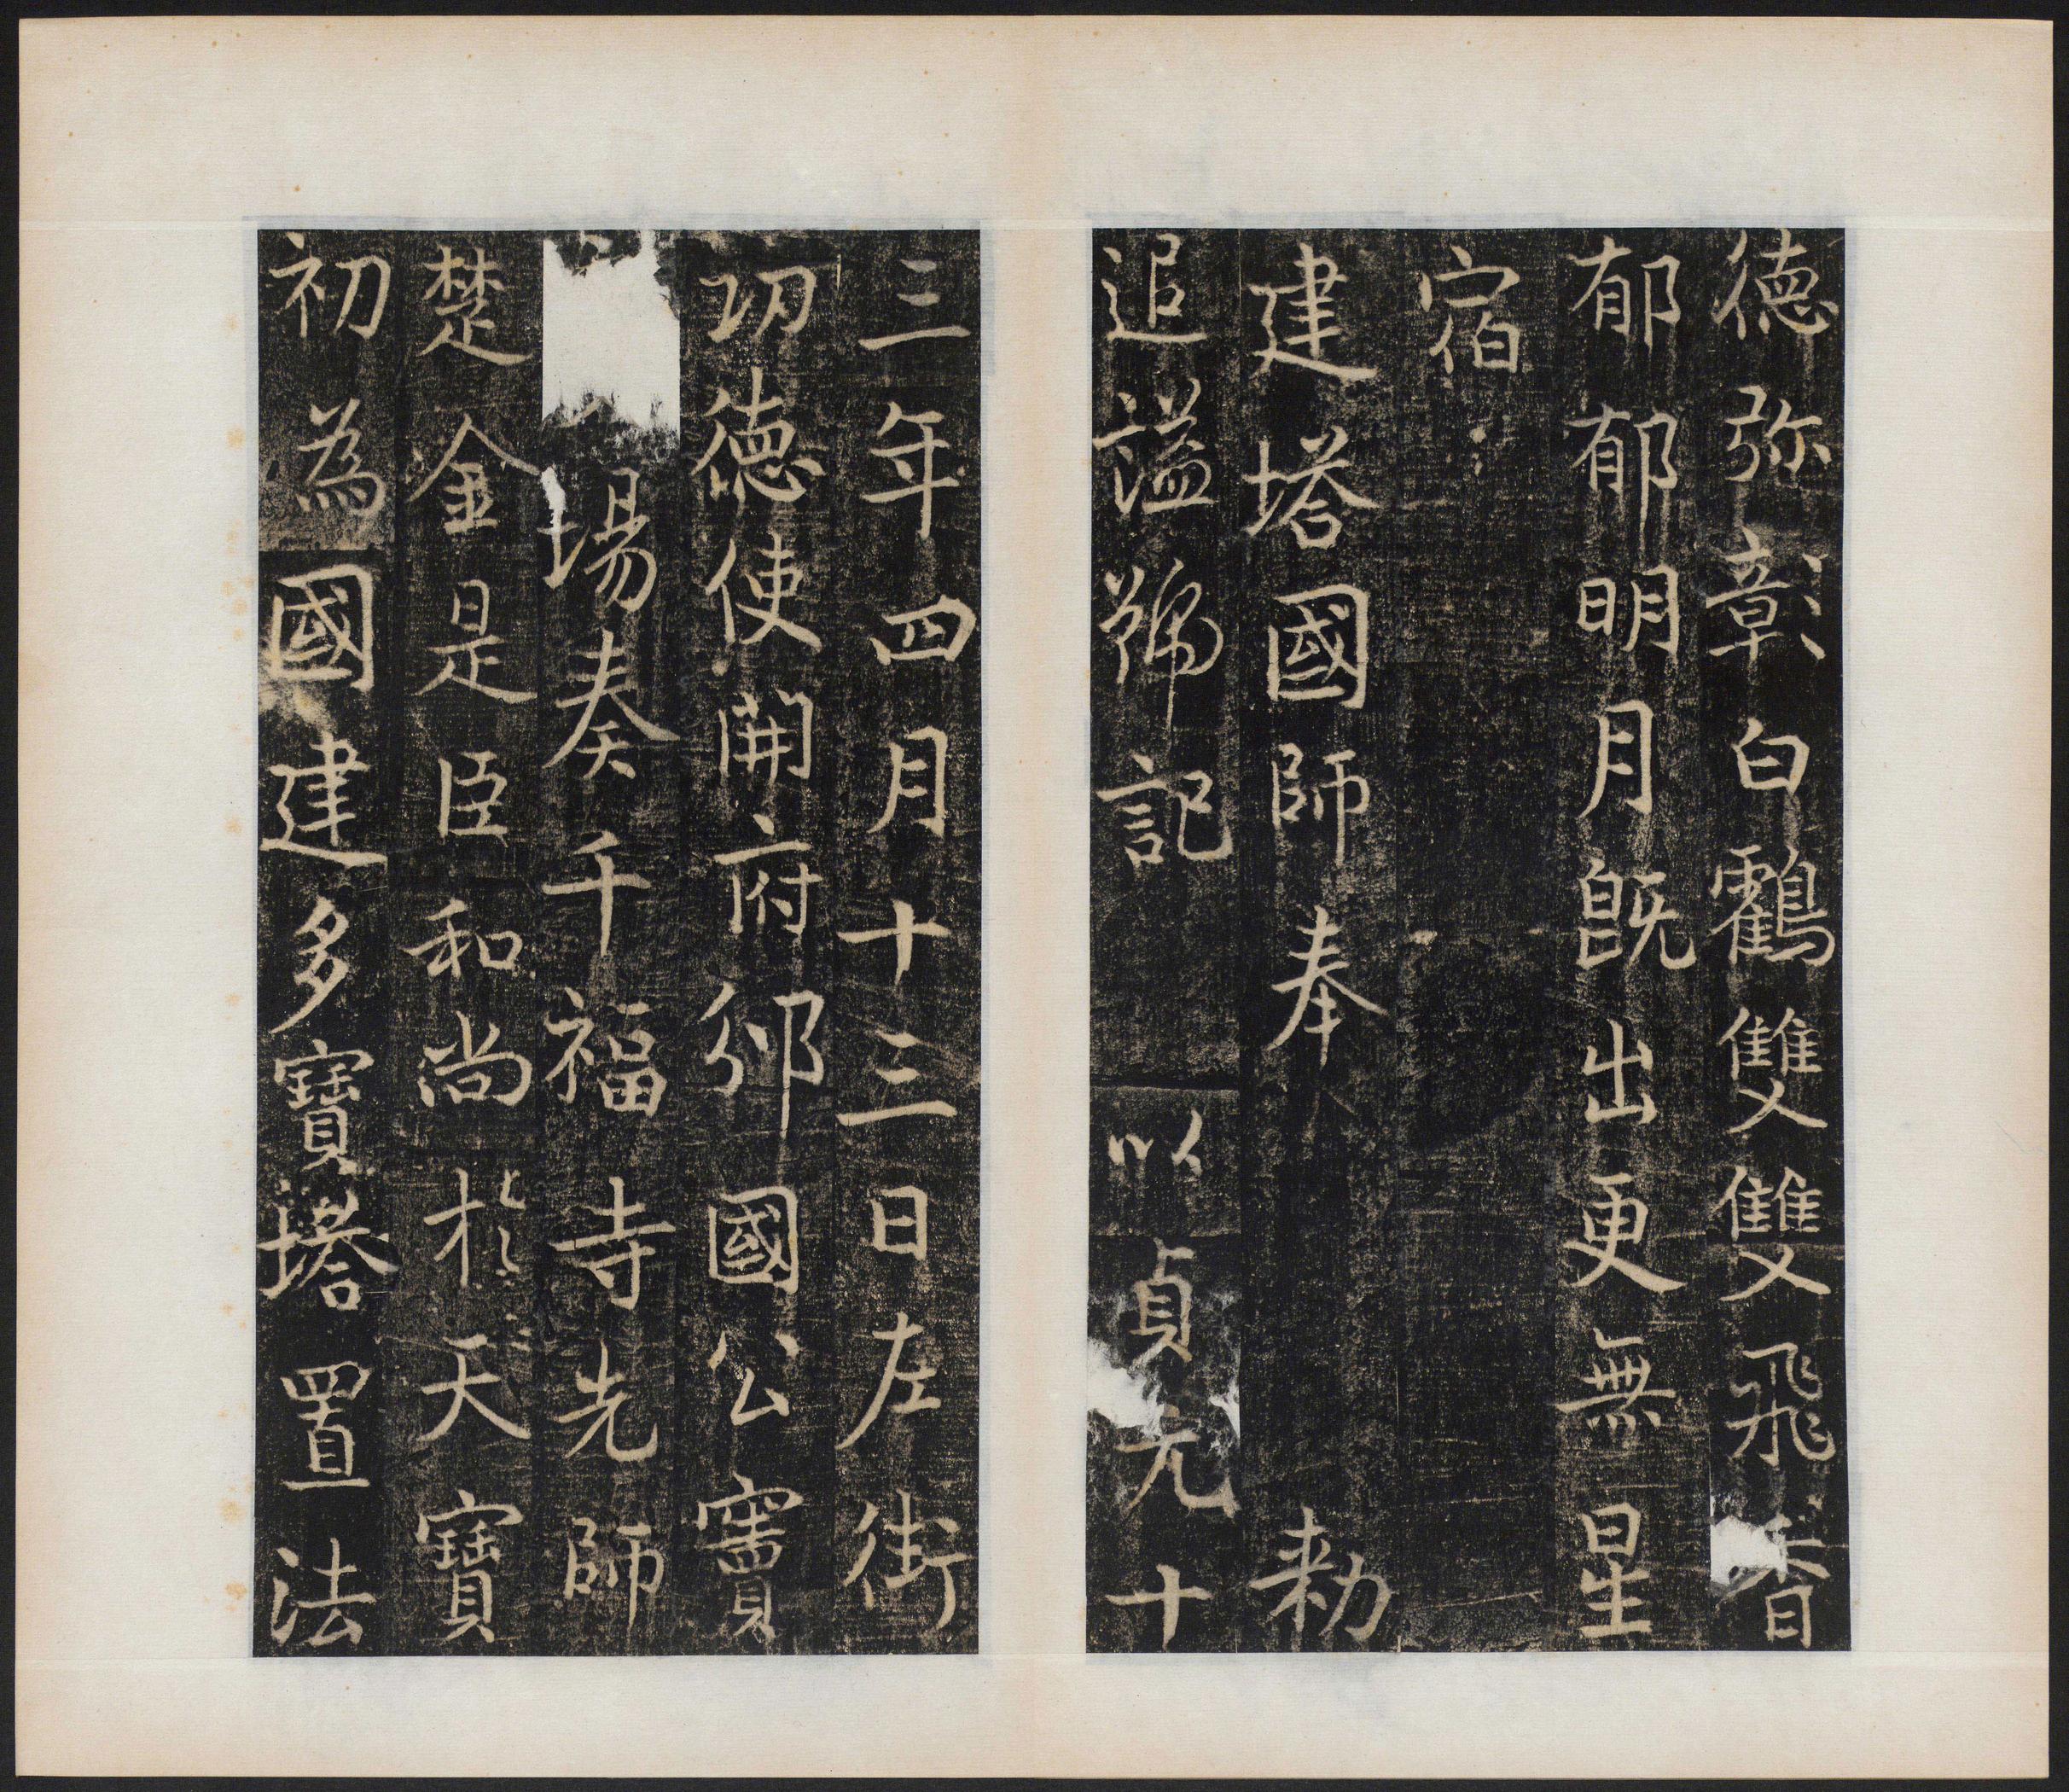 德弥彰白鸖雙雙飛香
郁郁明月既出更無星
宿
建塔國師奉勑
追謚號記以貞元十
三年四月十三日左街
功德使開府邠國公竇
場奏千福寺先師
楚金是臣和尚於天寶
初為國建多寶塔置法